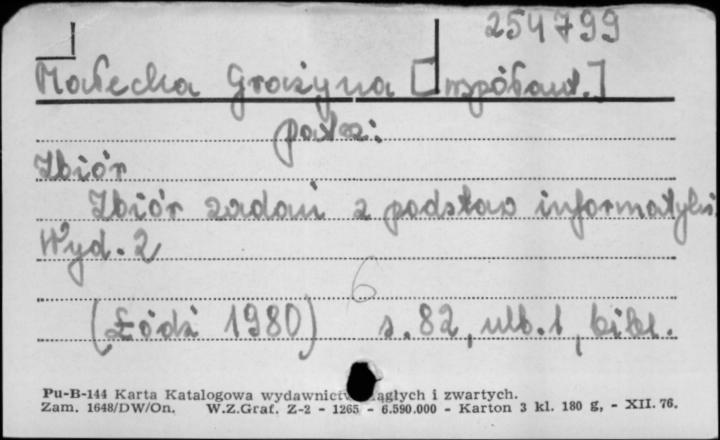 254799
Małecka Grażyna [współaut.]
patrz:
Zbiór
Zbiór zadań z podstaw informatyki
Wyd. 2
6
(Łódź 1980) s. 82, nlb. 1, bibl.
Pu-B-144 Karta Katalogowa wydawnictw ciągłych i zwartych.
Zam. 1648/DW/On. W.Z.Graf. Z-2 - 1265 - 6.590.000 - Karton 3 kl. 180 g, - XII. 76.